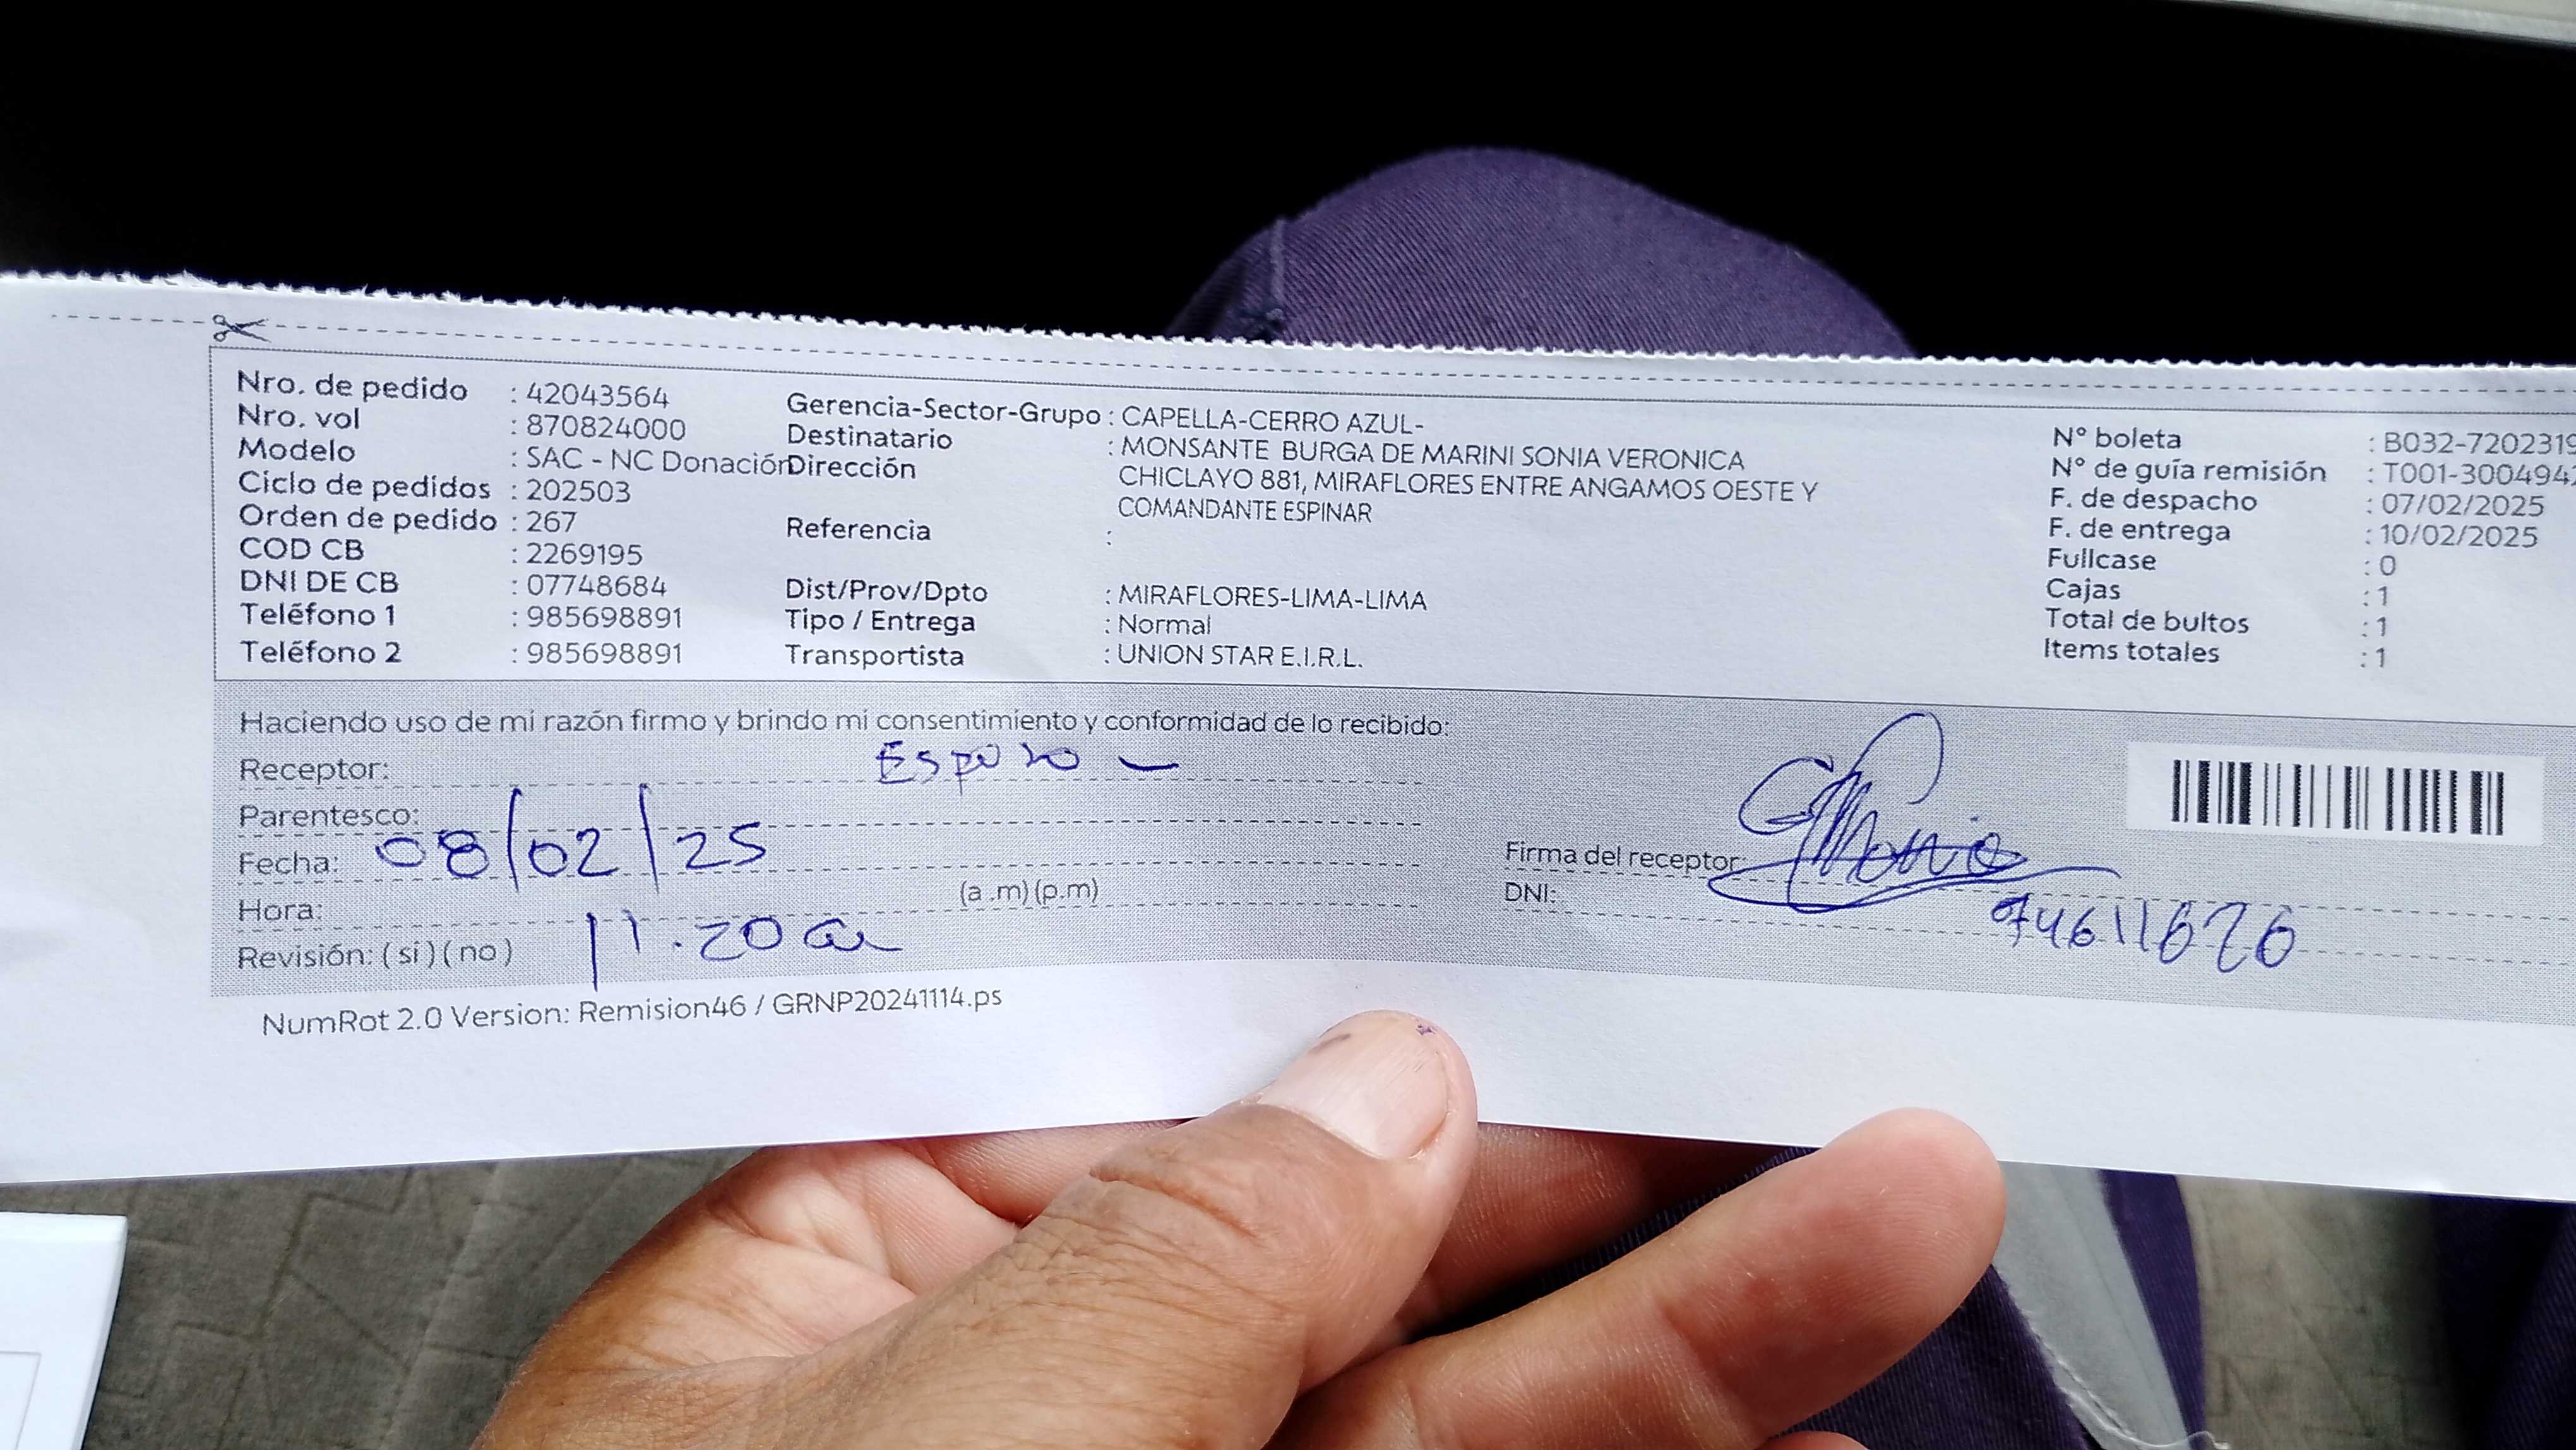 Nro. de pedido : 42043564
Nro. vol : 870824000
Modelo : SAC - NC Donación
Ciclo de pedidos : 202503
Orden de pedido : 267
COD CB : 2269195
DNI DE CB : 07748684
Teléfono 1 : 985698891
Teléfono 2 : 985698891
Gerencia-Sector-Grupo : CAPELLA-CERRO AZUL-
Destinatario : MONSANTE BURGA DE MARINI SONIA VERONICA
Dirección CHICLAYO 881, MIRAFLORES ENTRE ANGAMOS OESTE Y
COMANDANTE ESPINAR
Referencia :
Dist/Prov/Dpto : MIRAFLORES-LIMA-LIMA
Tipo / Entrega : Normal
Transportista : UNION STAR E.I.R.L.
N° boleta : B032-7202319
N° de guía remisión : T001-300494
F. de despacho : 07/02/2025
F. de entrega : 10/02/2025
Fullcase : 0
Cajas : 1
Total de bultos : 1
Items totales : 1
Haciendo uso de mi razón firmo y brindo mi consentimiento y conformidad de lo recibido:
Receptor: Esposo
Parentesco:
Fecha: 08/02/25
Hora: (a .m) (p.m)
Revisión: ( si ) ( no ) 11.20 a
Firma del receptor:
DNI:
NumRot 2.0 Version: Remision46 / GRNP20241114.ps